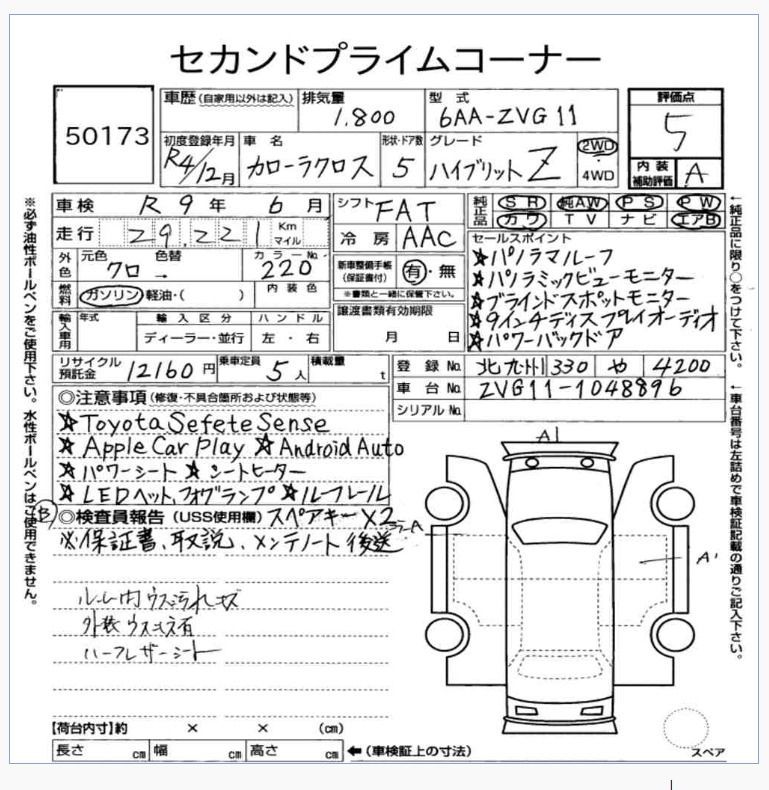 セカンドプライムコーナー
50173
車歴 (自家用以外は記入) 排気量 1.800 型式 6AA-ZVG11
評価点 5
初度登録年月 R4/12月 車名 カローラクロス 形状・ドア数 5 グレード ハイブリット Z 2WD 4WD
内装補助評価 A
車検 R 9年 6月 シフト FAT 純正品 SR 純AW PS PW
カワ TV ナビ エアB
走行 29.221 Km マイル 冷房 AAC
外色 元色 クロ 色替 → カラーNo. 220
燃料 ガソリン・軽油・( ) 内装色
新車整備手帳 (保証書付) 有・無
※書類と一緒に保管下さい。
セールスポイント
☆パノラマルーフ
☆パノラミックビューモニター
☆ブラインドスポットモニター
☆9インチディスプレイオーディオ
☆パワーバックドア
輸入車用 年式 輸入区分 ディーラー・並行 ハンドル 左・右
譲渡書類有効期限 月 日
リサイクル預託金 12160円 乗車定員 5人 積載量 t
登録No. 北九州 330 や 4200
車台No. ZVG11-1048896
シリアルNo.
◎注意事項 (修復・不具合箇所および状態等)
☆Toyota Sefete Sense
☆Apple Car Play ☆Android Auto
☆パワーシート ☆シートヒーター
☆LEDヘット、フォグランプ ☆ルーフレール
B ◎検査員報告 (USS使用欄) スペアキー×2
※保証書、取説、メンテノート後送
ルーム内ウス汚れキズ
外装ウスキズ有
ハーフレザーシート
A1
A
A'
【荷台内寸】約 × × (cm)
長さ cm 幅 cm 高さ cm ←(車検証上の寸法)
スペア
※必ず油性ボールペンをご使用下さい。水性ボールペンはご使用できません。
←純正品に限り○をつけて下さい。
←車台番号は左詰めで車検証記載の通りご記入下さい。